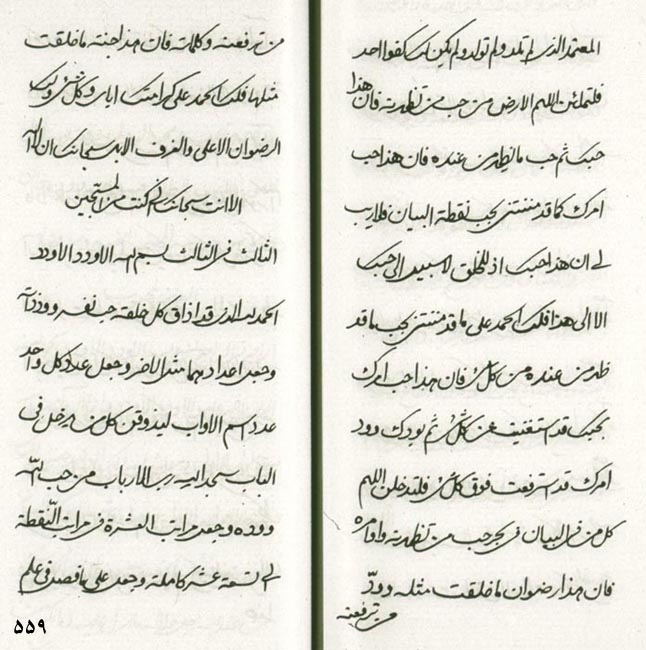 المعتمد الذی لم تلد ولم تولد ولم یکن لک کفوا احد
فلتملئن اللهم الارض من حب من تظهرنه فان هذا
حبک ثم حب ما یظهر من عنده فان هذا حب
امرک کما قد مننتنی بحب نقطة البیان فلاریب
لی ان هذا حبک اذ للخلق لا سبیل الی حبک
الا الی هذا فلک الحمد علی ما قد مننتنی بحب ما قد
ظهر من عنده من کل شیء فان هذا حب امرک
بحبک قد استغنیت عن کل شیء ثم بودک وود
امرک قد استرفعت فوق کل شیء فلتدخلن اللهم
کل من فی البیان فی بحر حب من تظهرنه وامره
فان هذا رضوان ما خلقت مثله وودّ
من ترفعنه
من ترفعنه وکلماته فان هذا جنة ما خلقت
مثلها فلک الحمد علی کرامتک ایای وکل شیء ولک
الرضوان الاعلی والغرف سبحانک ان لا اله
الا انت سبحانک انی کنت من المسبحین
الثالث فی الثالث بسم الله الاودد الاودد
الحمد لله الذی قد اذاق کل خلقه حب نفسه وود ذاته
وجعل اعدادهما مثل الاخر وجعل عدد کل واحد
عدد اسم الاواب لیذوقن کل من یدخل فی
الباب رب الارباب من حب الله
ووده وجعل مراتب العشرة فی مراتب النّقطة
الی تسعة عشر کاملة وجعل علی ما قصد فی علم
۵۵۹